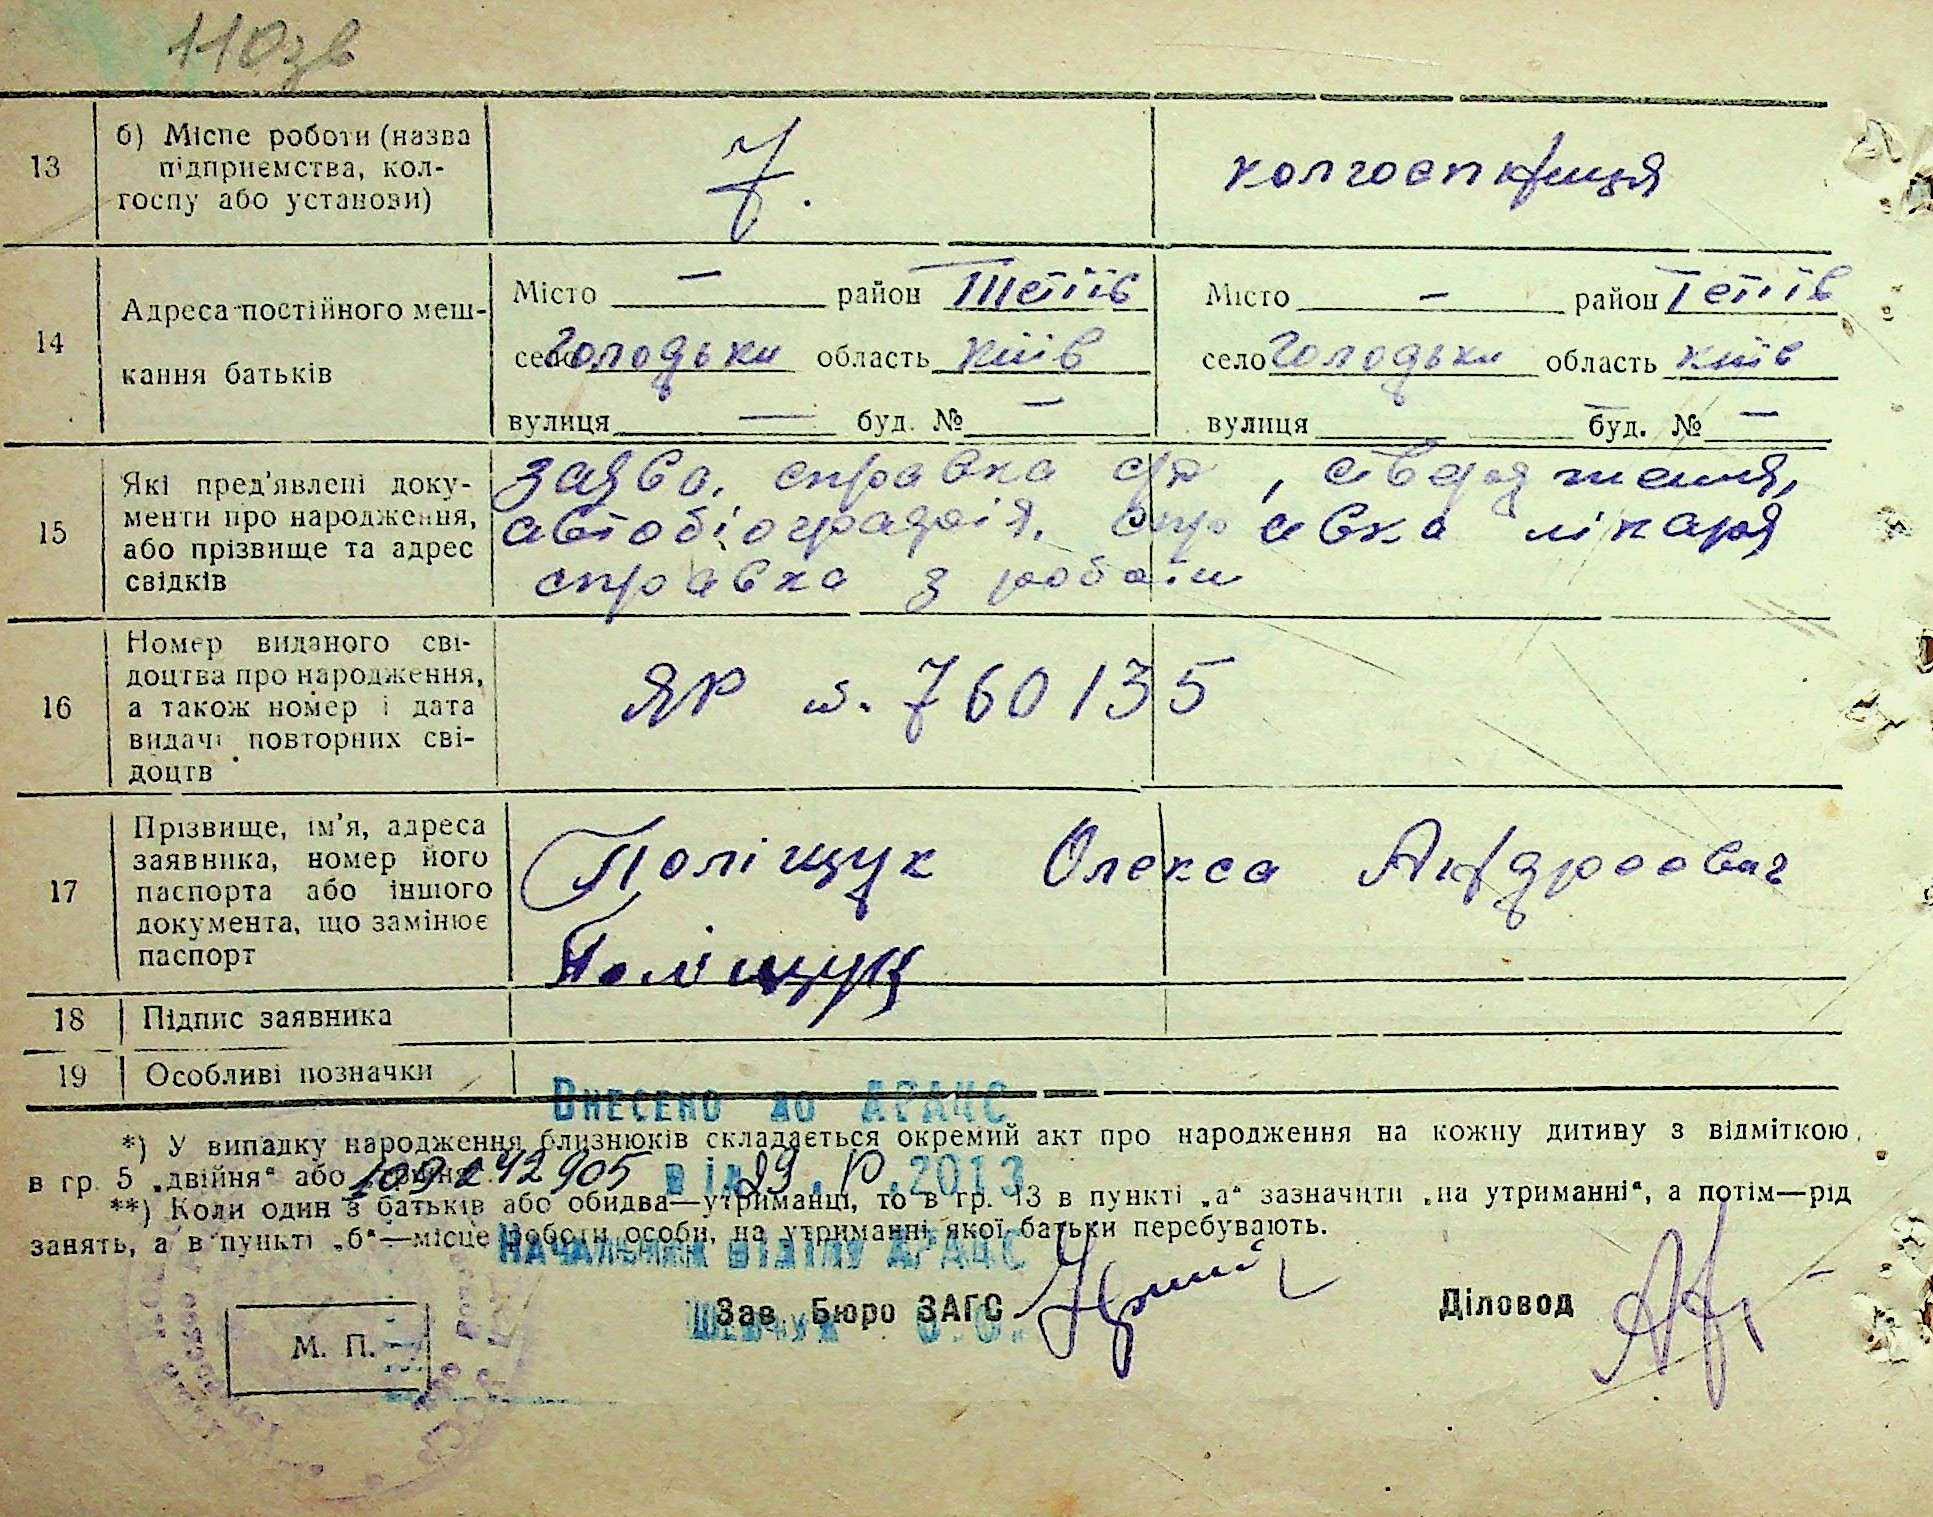 110зв
13 б) Місце роботи (назва підприємства, колгоспу або установи) колгоспниця
14 Адреса постійного мешкання батьків
Місто — район Тетіїв Місто — район Тетіїв
село Голодьки область Київ село Голодьки область Київ
вулиця — буд. № — вулиця — буд. № —
15 Які пред'явлені документи про народження, або прізвище та адрес свідків
заява, справка с/р, свердження,
автобіографія, справка лікаря
справка з роботи
16 Номер виданого свідоцтва про народження, а також номер і дата видачі повторних свідоцтв
ЯР 760135
17 Прізвище, ім'я, адреса заявника, номер його паспорта або іншого документа, що замінює паспорт
Поліщук Олекса Андроович
Поліщук
18 Підпис заявника
19 Особливі позначки
Внесено до ДРАЦС
*) У випадку народження близнюків складається окремий акт про народження на кожну дитину з відміткою,
в гр. 5 „двійня" або
від 2013
**) Коли один з батьків або обидва—утриманці, то в гр. 13 в пункті „а" зазначити „на утриманні", а потім—рід
занять, а в пункті „б"—місце роботи особи, на утриманні якої батьки перебувають.
Начальник відділу ДРАЦС
Зав. Бюро ЗАГС Діловод
М. П.